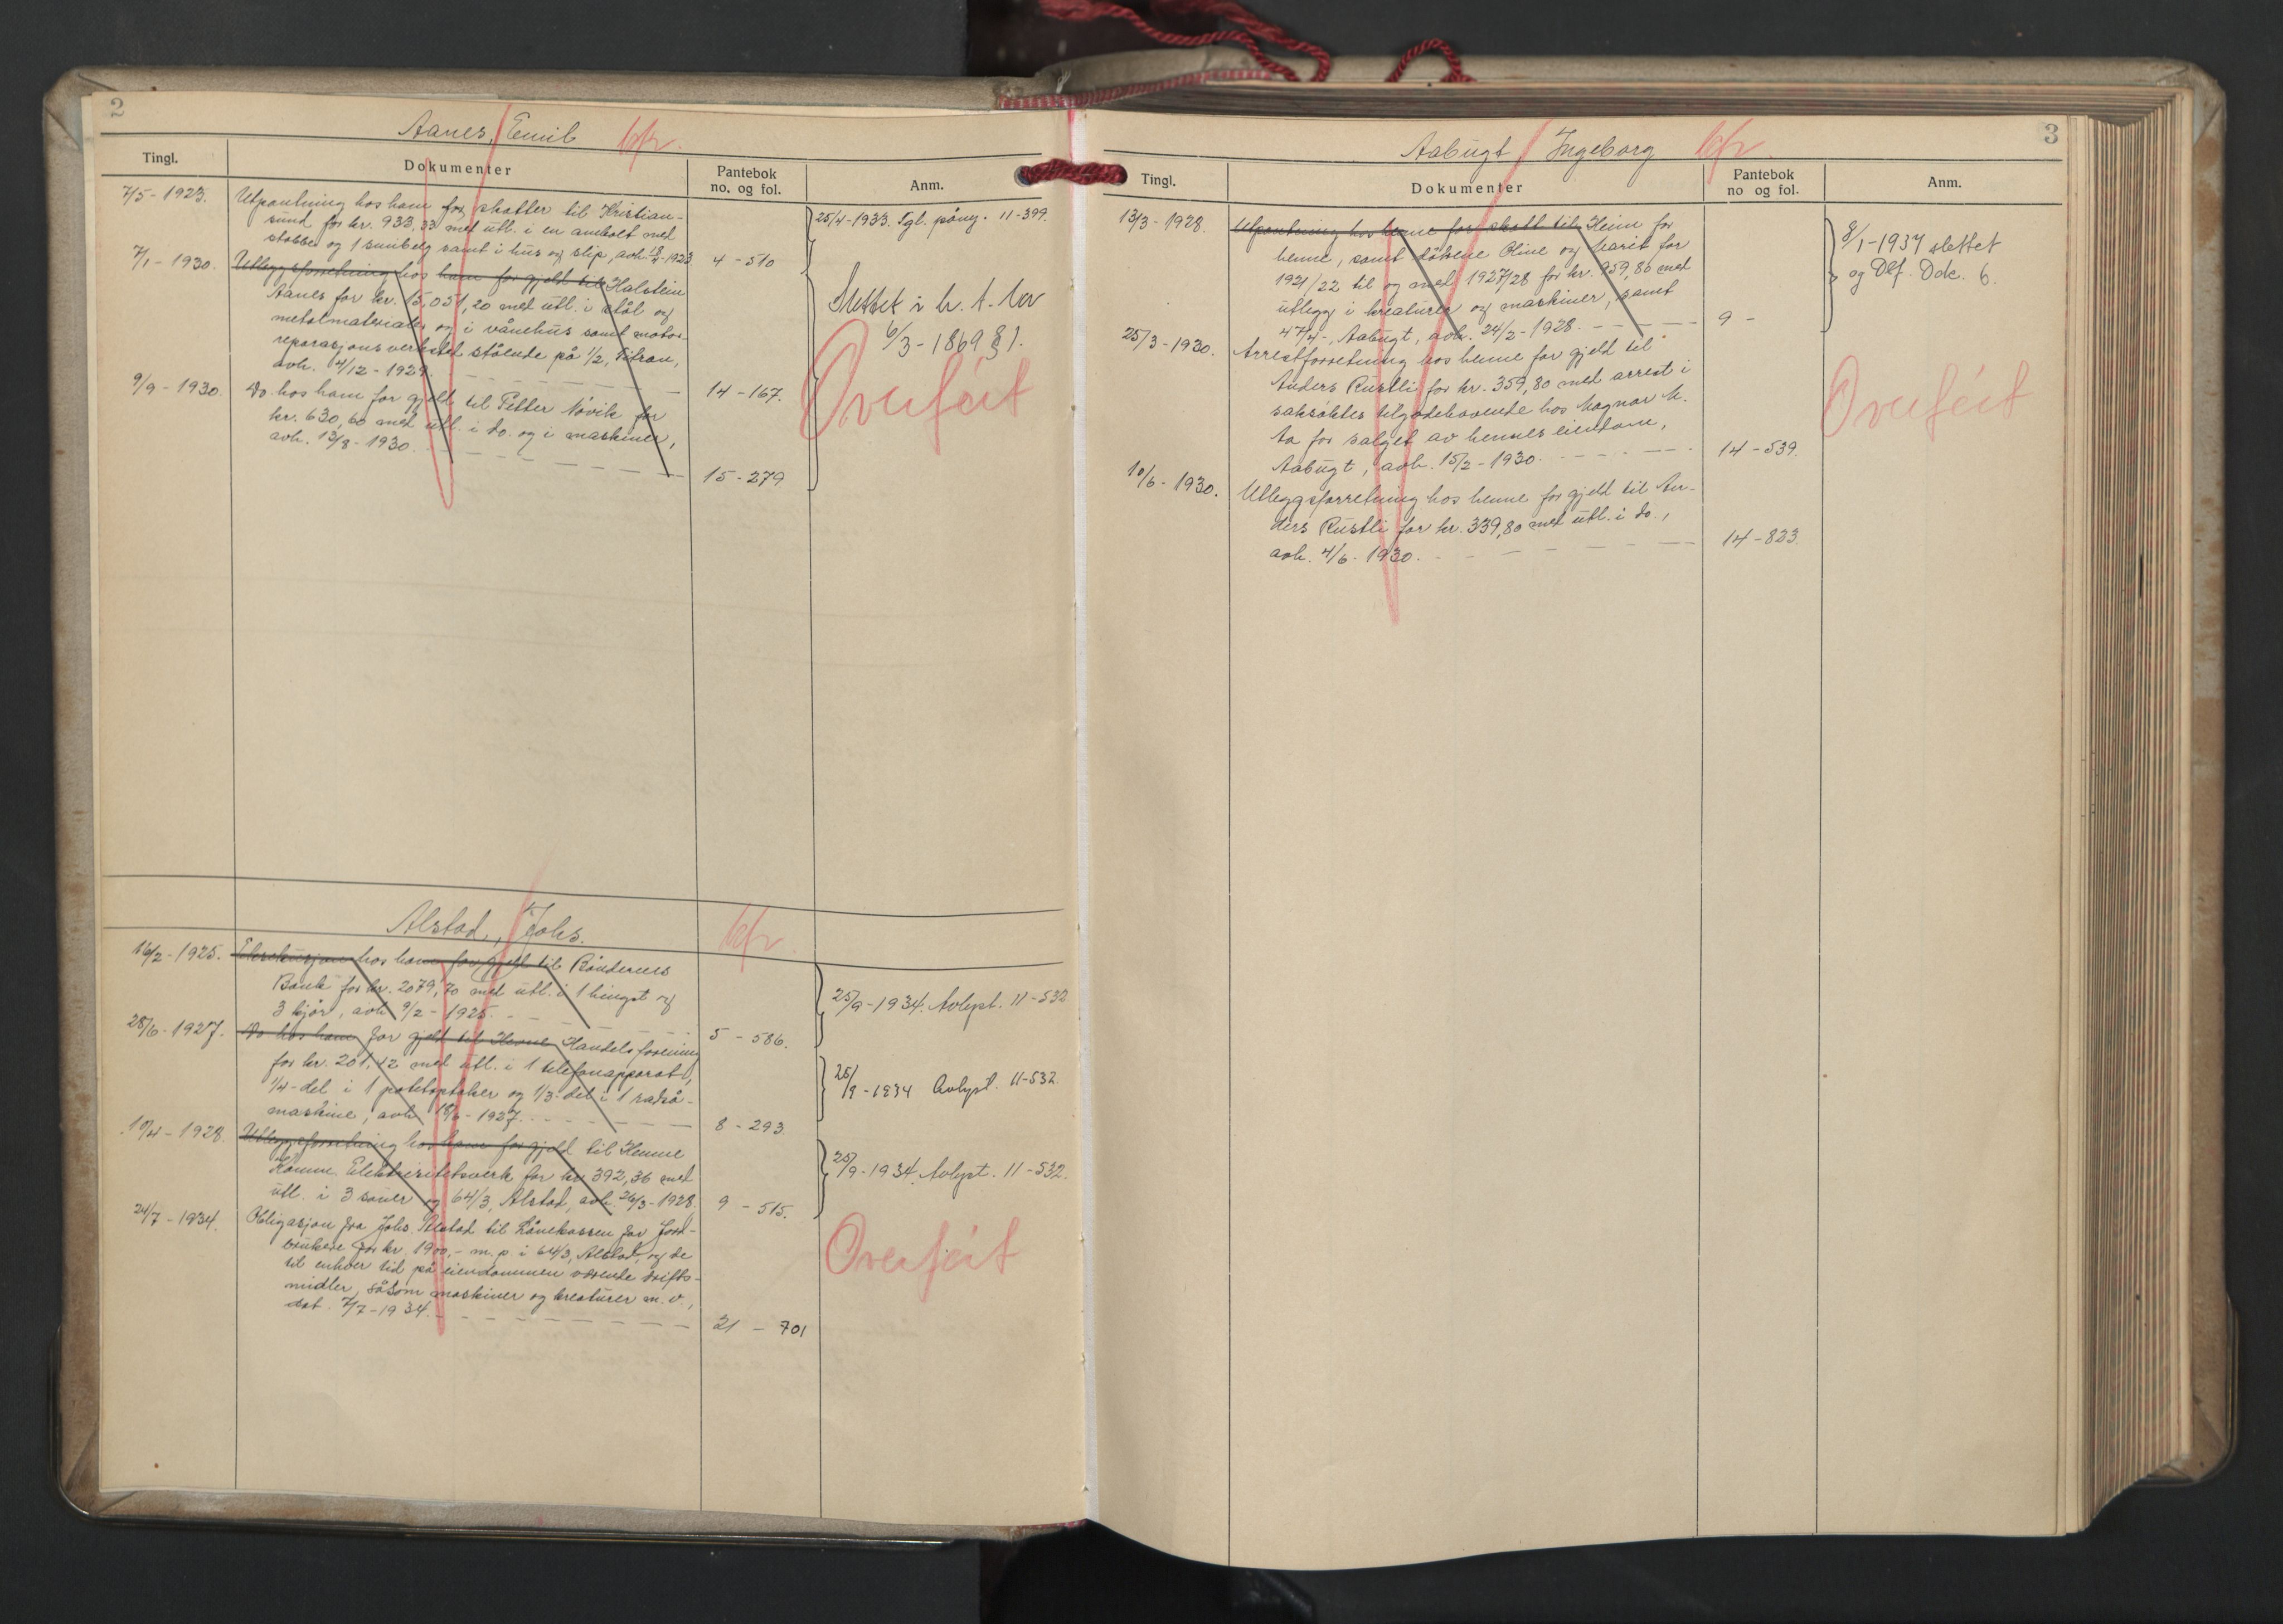 2
Aanes, Emil
Tingl. Dokumenter Pantebok no. og fol. Anm.
7/5 - 1923. Utpantning hos ham for skatter til Kristian-
sund for kr. 933,33 med utl. i en ambolt med
stabbe og 1 smibelg samt i hus og slip, avh. 18/4-1923 4 - 510
25/4-1933. Tgl. påny. 11-399.
7/1 - 1930. Utleggsforretning hos ham for gjeld til Halstein
Aanes for kr. 15,051,20 med utl. i stål og
metalmaterialer og i vånehus samt motor-
reparasjonsverksted stående på 1/2, Titran,
avh. 4/12 - 1929. 14 - 167.
Slettet i h. t. lov
6/3 - 1869 § 1.
Overført
9/9 - 1930. Do hos ham for gjeld til Petter Növik for
kr. 630,60 med utl. i do. og i maskiner,
avh. 13/8 - 1930. 15 - 279
Alstad, Johs.
16/2 - 1925. Eksekusjon hos ham for gjeld til Böndernes
Bank for kr. 2079,70 med utl. i 1 hingst og
3 kjör, avh. 9/2 - 1925. 5 - 586.
25/9 - 1934. Avlyst. 11-532
28/6 - 1927. Do hos ham for gjeld til Hevne Handelsforening
for kr. 201,42 med utl. i 1 telefonapparat,
1/4-del i 1 potetoptaker og 1/3-del i 1 radså-
maskine, avh. 18/6 - 1927. 8 - 293
25/9 - 1934 Avlyst. 11-532.
10/4 - 1928. Utleggsforretning hos ham for gjeld til Hemne
Komm. Elektrisitetsverk for kr. 392,36 med
utl. i 3 sauer og 64/3, Alstad, avh. 26/3-1928. 9 - 515.
25/9 - 1934. Avlyst. 11-532.
24/7 - 1934. Obligasjon fra Johs. Alstad til Lånekassen for Jord-
brukere for kr. 1900,- m. p. i 64/3, Alstad, og de
til enhver tid på eiendommen værende drifts-
midler, såsom maskiner og kreaturer m. v.,
dat. 7/7 - 1934. 21 - 701
Overført
3
Aabugt Ingeborg
Tingl. Dokumenter Pantebok no og fol. Anm.
13/3 - 1928. Utpantning hos henne for skatt til Heim for
henne, samt döttrene Oline og Marit for
1921/22 til og med 1927/28 for kr. 959,86 med
utlegg i kreaturer og maskiner, samt
47/4, Aabugt, avh. 24/2 - 1928. 9 -
8/1-1937 slettet
og Dlf. Dok. 6.
25/3 - 1930. Arrestforretning hos henne for gjeld til
Anders Rustli for kr. 359,80 med arrest i
saksöktes tilgodehavende hos Magnar M.
Aa for salget av hennes eiendom,
Aabugt, avh. 15/2 - 1930. 14 - 539.
Overført
10/6 - 1930. Utleggsforretning hos henne for gjeld til An-
ders Rustli for kr. 339,80 med utl. i do.,
avh. 4/6 - 1930. 14 - 823.